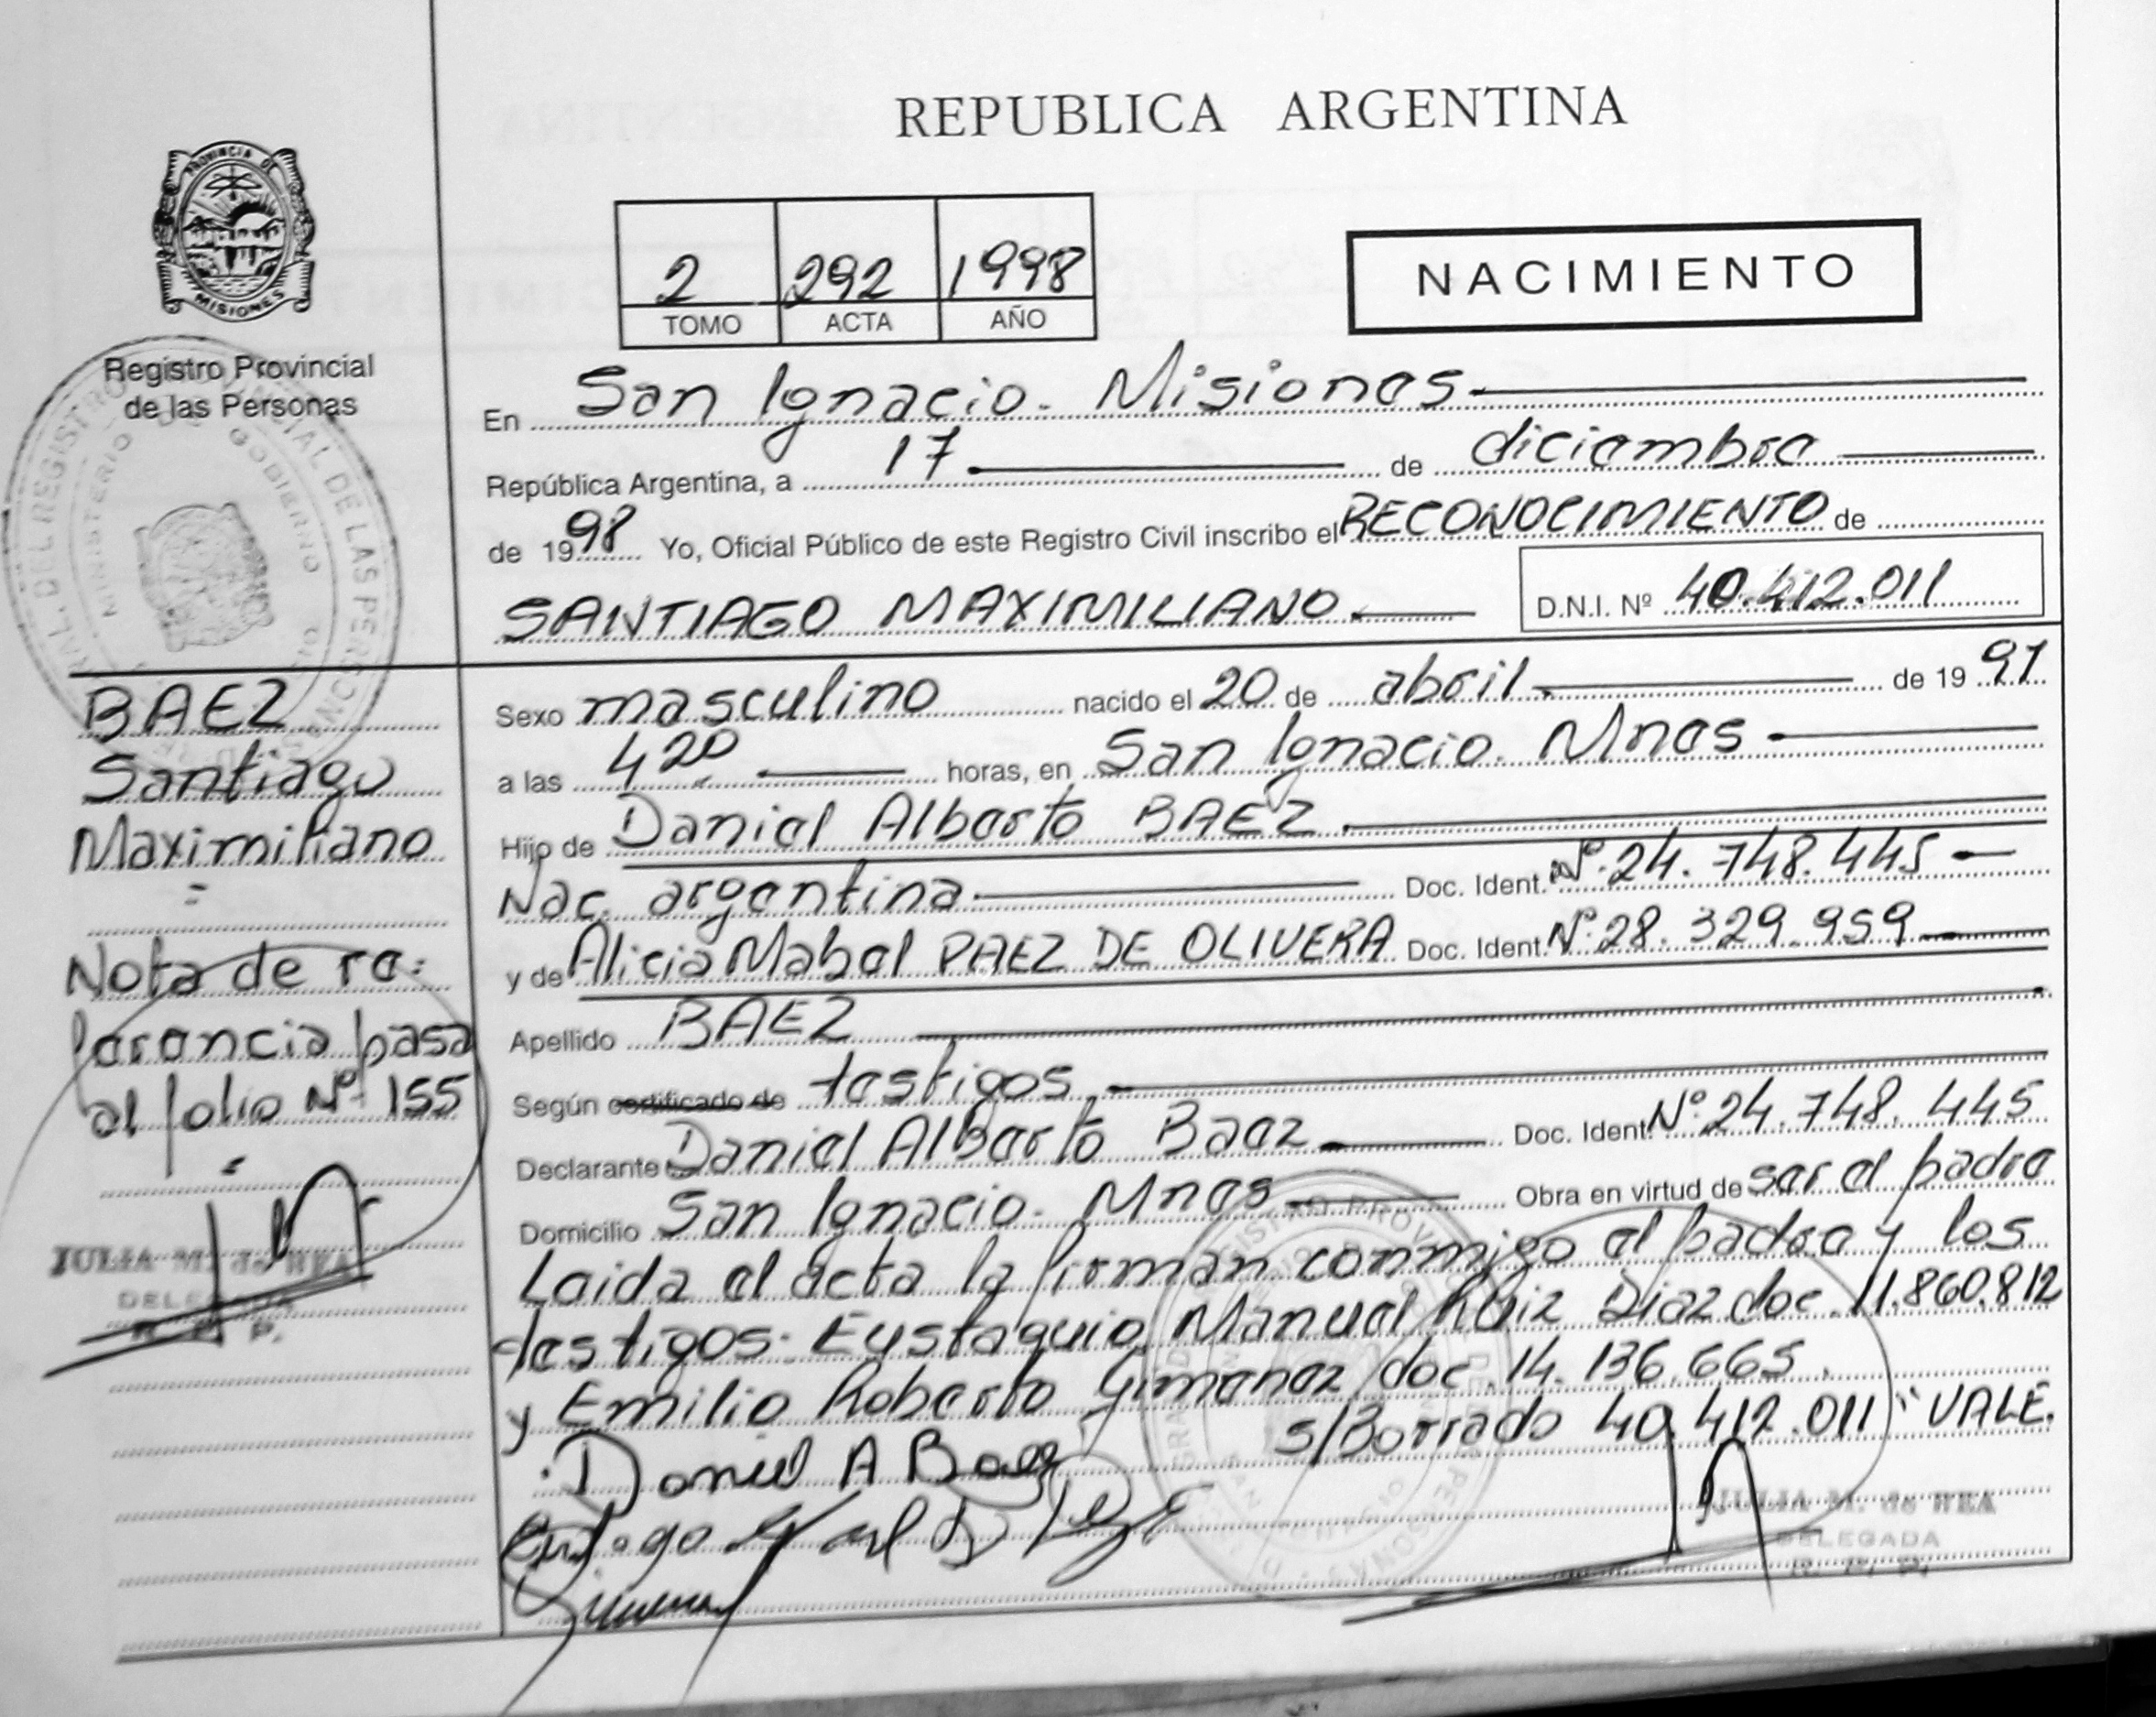 REPUBLICA ARGENTINA
PROVINCIA DE
MISIONES
Registro Provincial
de las Personas
2 292 1998
TOMO ACTA AÑO
NACIMIENTO
En San Ignacio. Misiones
República Argentina, a 17 de diciembre
de 1998 Yo, Oficial Público de este Registro Civil inscribo el RECONOCIMIENTO de
SANTIAGO MAXIMILIANO. D.N.I. Nº 40.412.011
BAEZ
Santiago
Maximiliano
Nota de re=
ferencia pasa
al folio Nº 155
JULIA M. de REA
DELEGADA
R. P. P.
Sexo masculino nacido el 20 de abril de 1997
a las 4 20 horas, en San Ignacio. Mnes
Hijo de Daniel Alberto BAEZ.
Nac. argentina Doc. Ident. Nº 24.748.445
y de Alicia Mabel PAEZ DE OLIVERA Doc. Ident. Nº 28.329.959
Apellido BAEZ
Según certificado de testigos
Declarante Daniel Alberto Baez Doc. Ident. Nº 24.748.445
Domicilio San Ignacio. Mnes Obra en virtud de ser el padre
Leida el acta la firman conmigo el padre y los
testigos: Eustaquio Manuel Ruiz Diaz doc. 11.860.812
y Emilio Roberto Gimenez doc. 14.136.665.
s/Borrado 40.412.011 "VALE.
Daniel A Baez
JULIA M. de REA
DELEGADA
R. P. P.